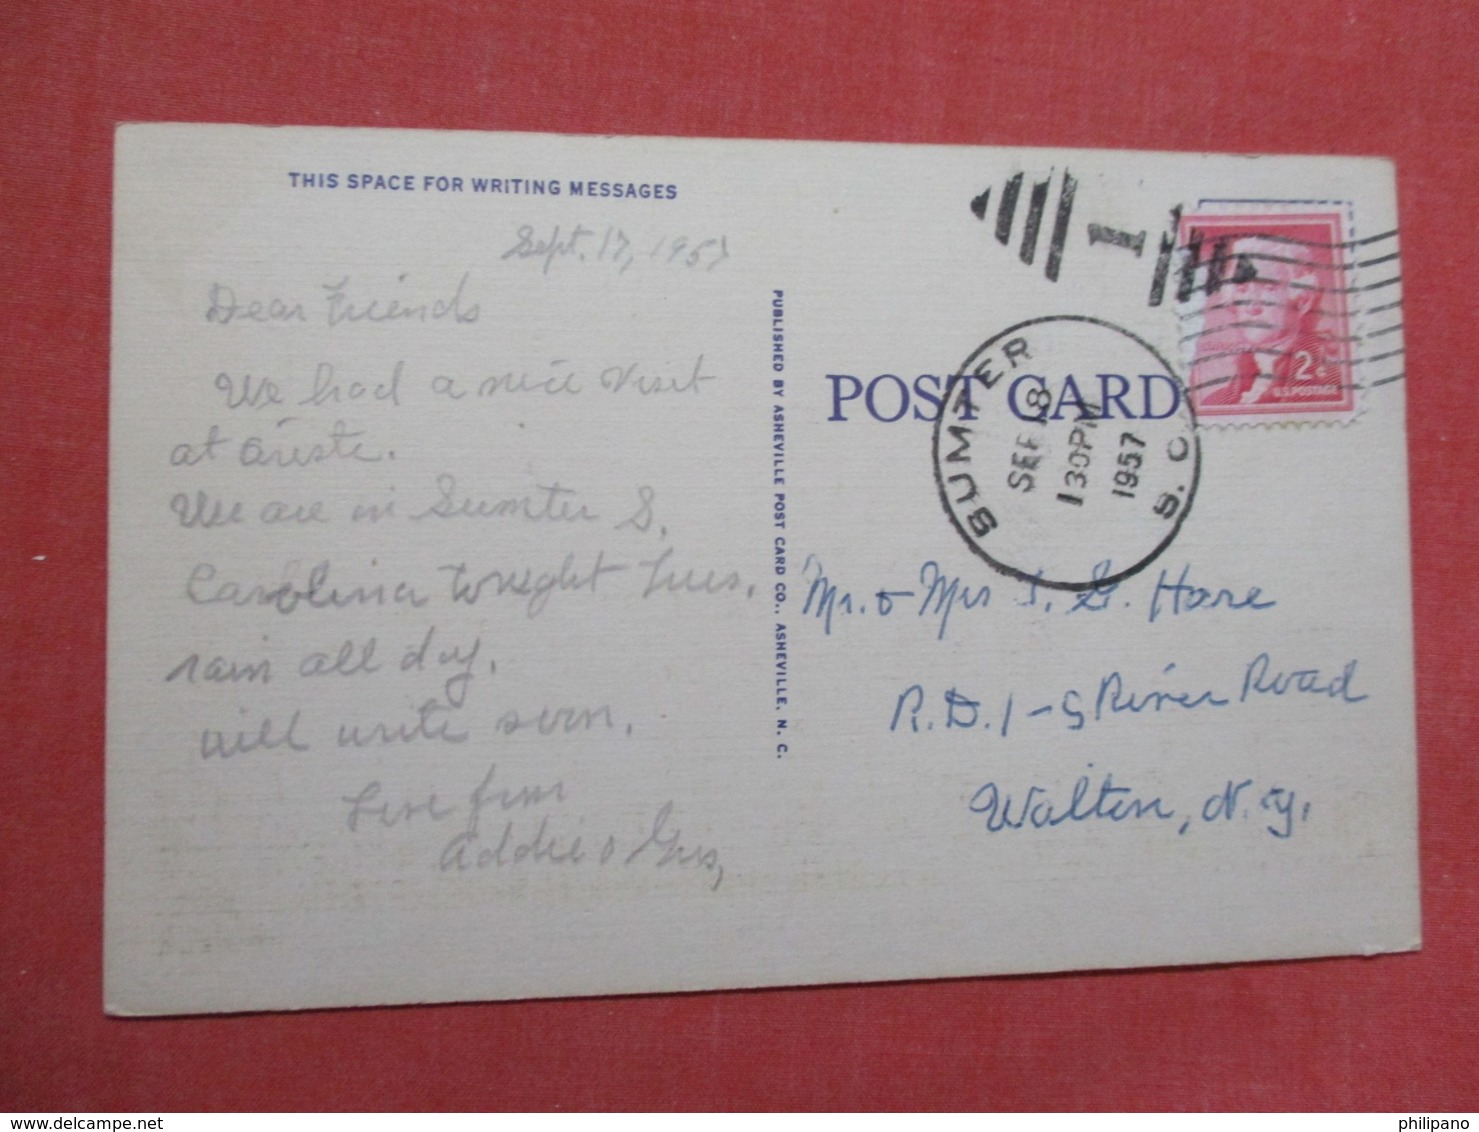 THIS SPACE FOR WRITING MESSAGES
Sept. 17, 1957
Dear Friends
We had a nice visit
at
We are in Sumter S.
Carolina tonight Tues.
rain all day.
will write soon.
Love from
Addie & Gus,
PUBLISHED BY ASHEVILLE POST CARD CO., ASHEVILLE, N. C.
POST CARD
1
SUMTER S. C.
SEP 18
130PM
1957
2¢
U.S. POSTAGE
Mr. & Mrs G. Hare
R.D. 1 - River Road
Walton, N.Y.
philipano